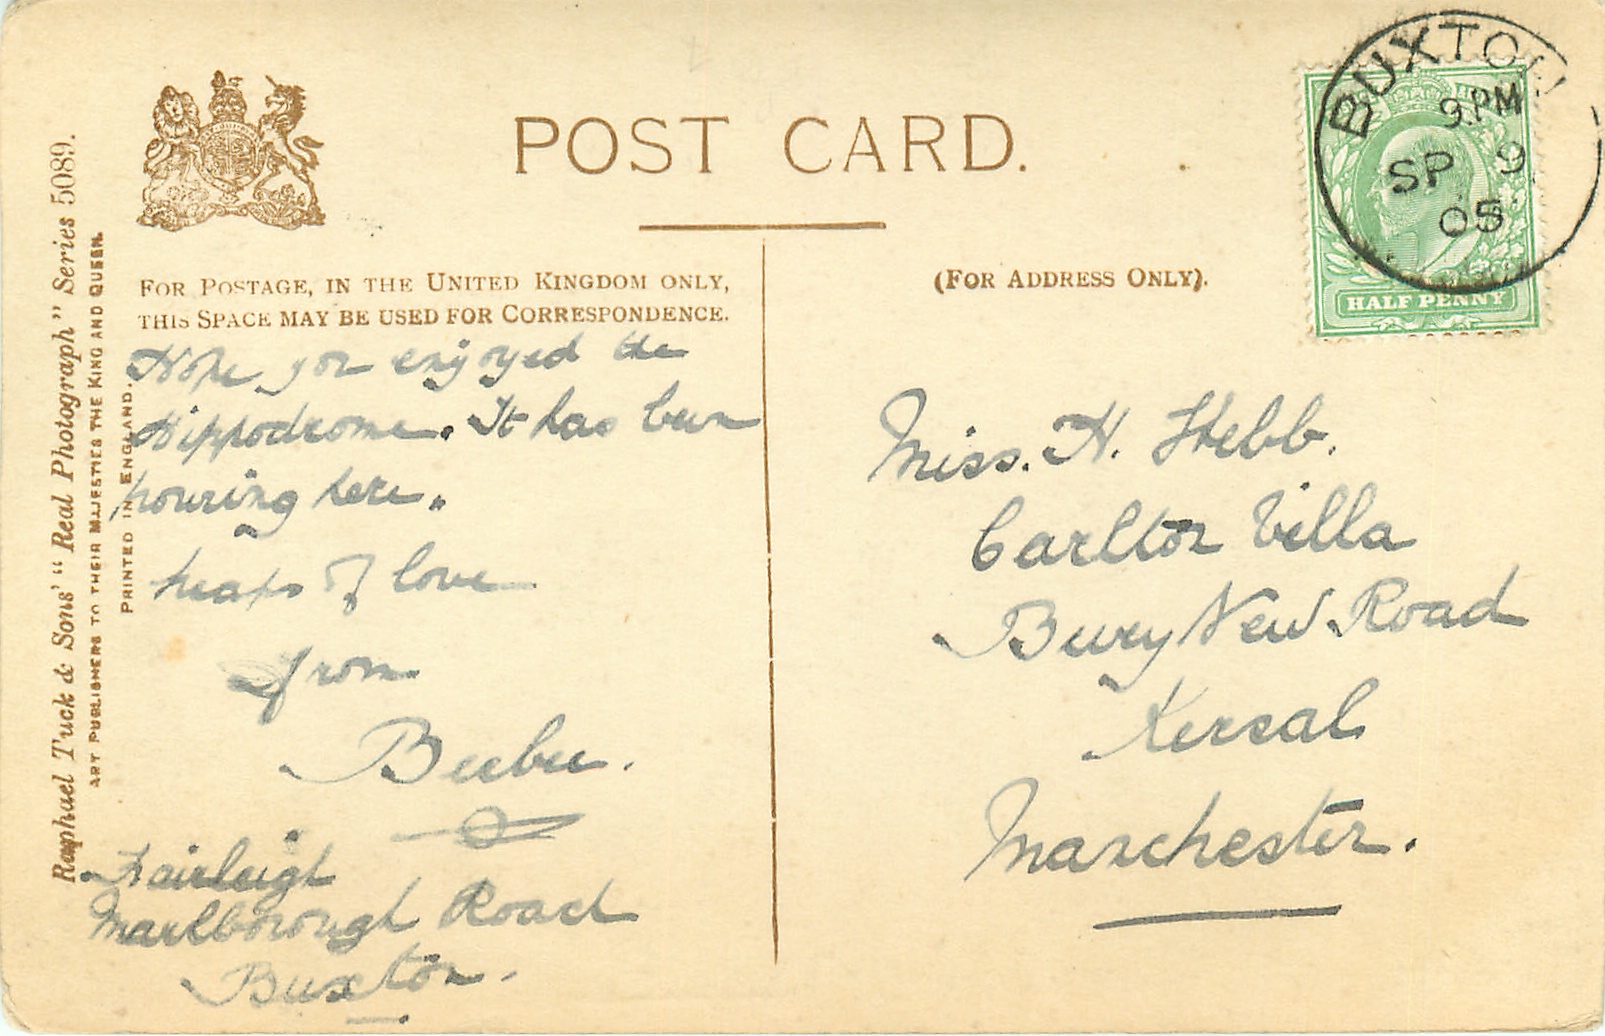 POST CARD.
FOR POSTAGE, IN THE UNITED KINGDOM ONLY,
THIS SPACE MAY BE USED FOR CORRESPONDENCE.
(FOR ADDRESS ONLY).
BUXTON
9.PM
SP 9
05
HALF PENNY
Raphael Tuck & Sons' "Real Photograph" Series 5089.
ART PUBLISHERS TO THEIR MAJESTIES THE KING AND QUEEN.
PRINTED IN ENGLAND.
Hope you enjoyed the
Hippodrome. It has been
pouring here.
heaps of love
from
Beebee.
Fairleigh
Marlborough Road
Buxton.
Miss. H. Stebb.
Carlton Villa
Bury New Road
Kersal
Manchester.